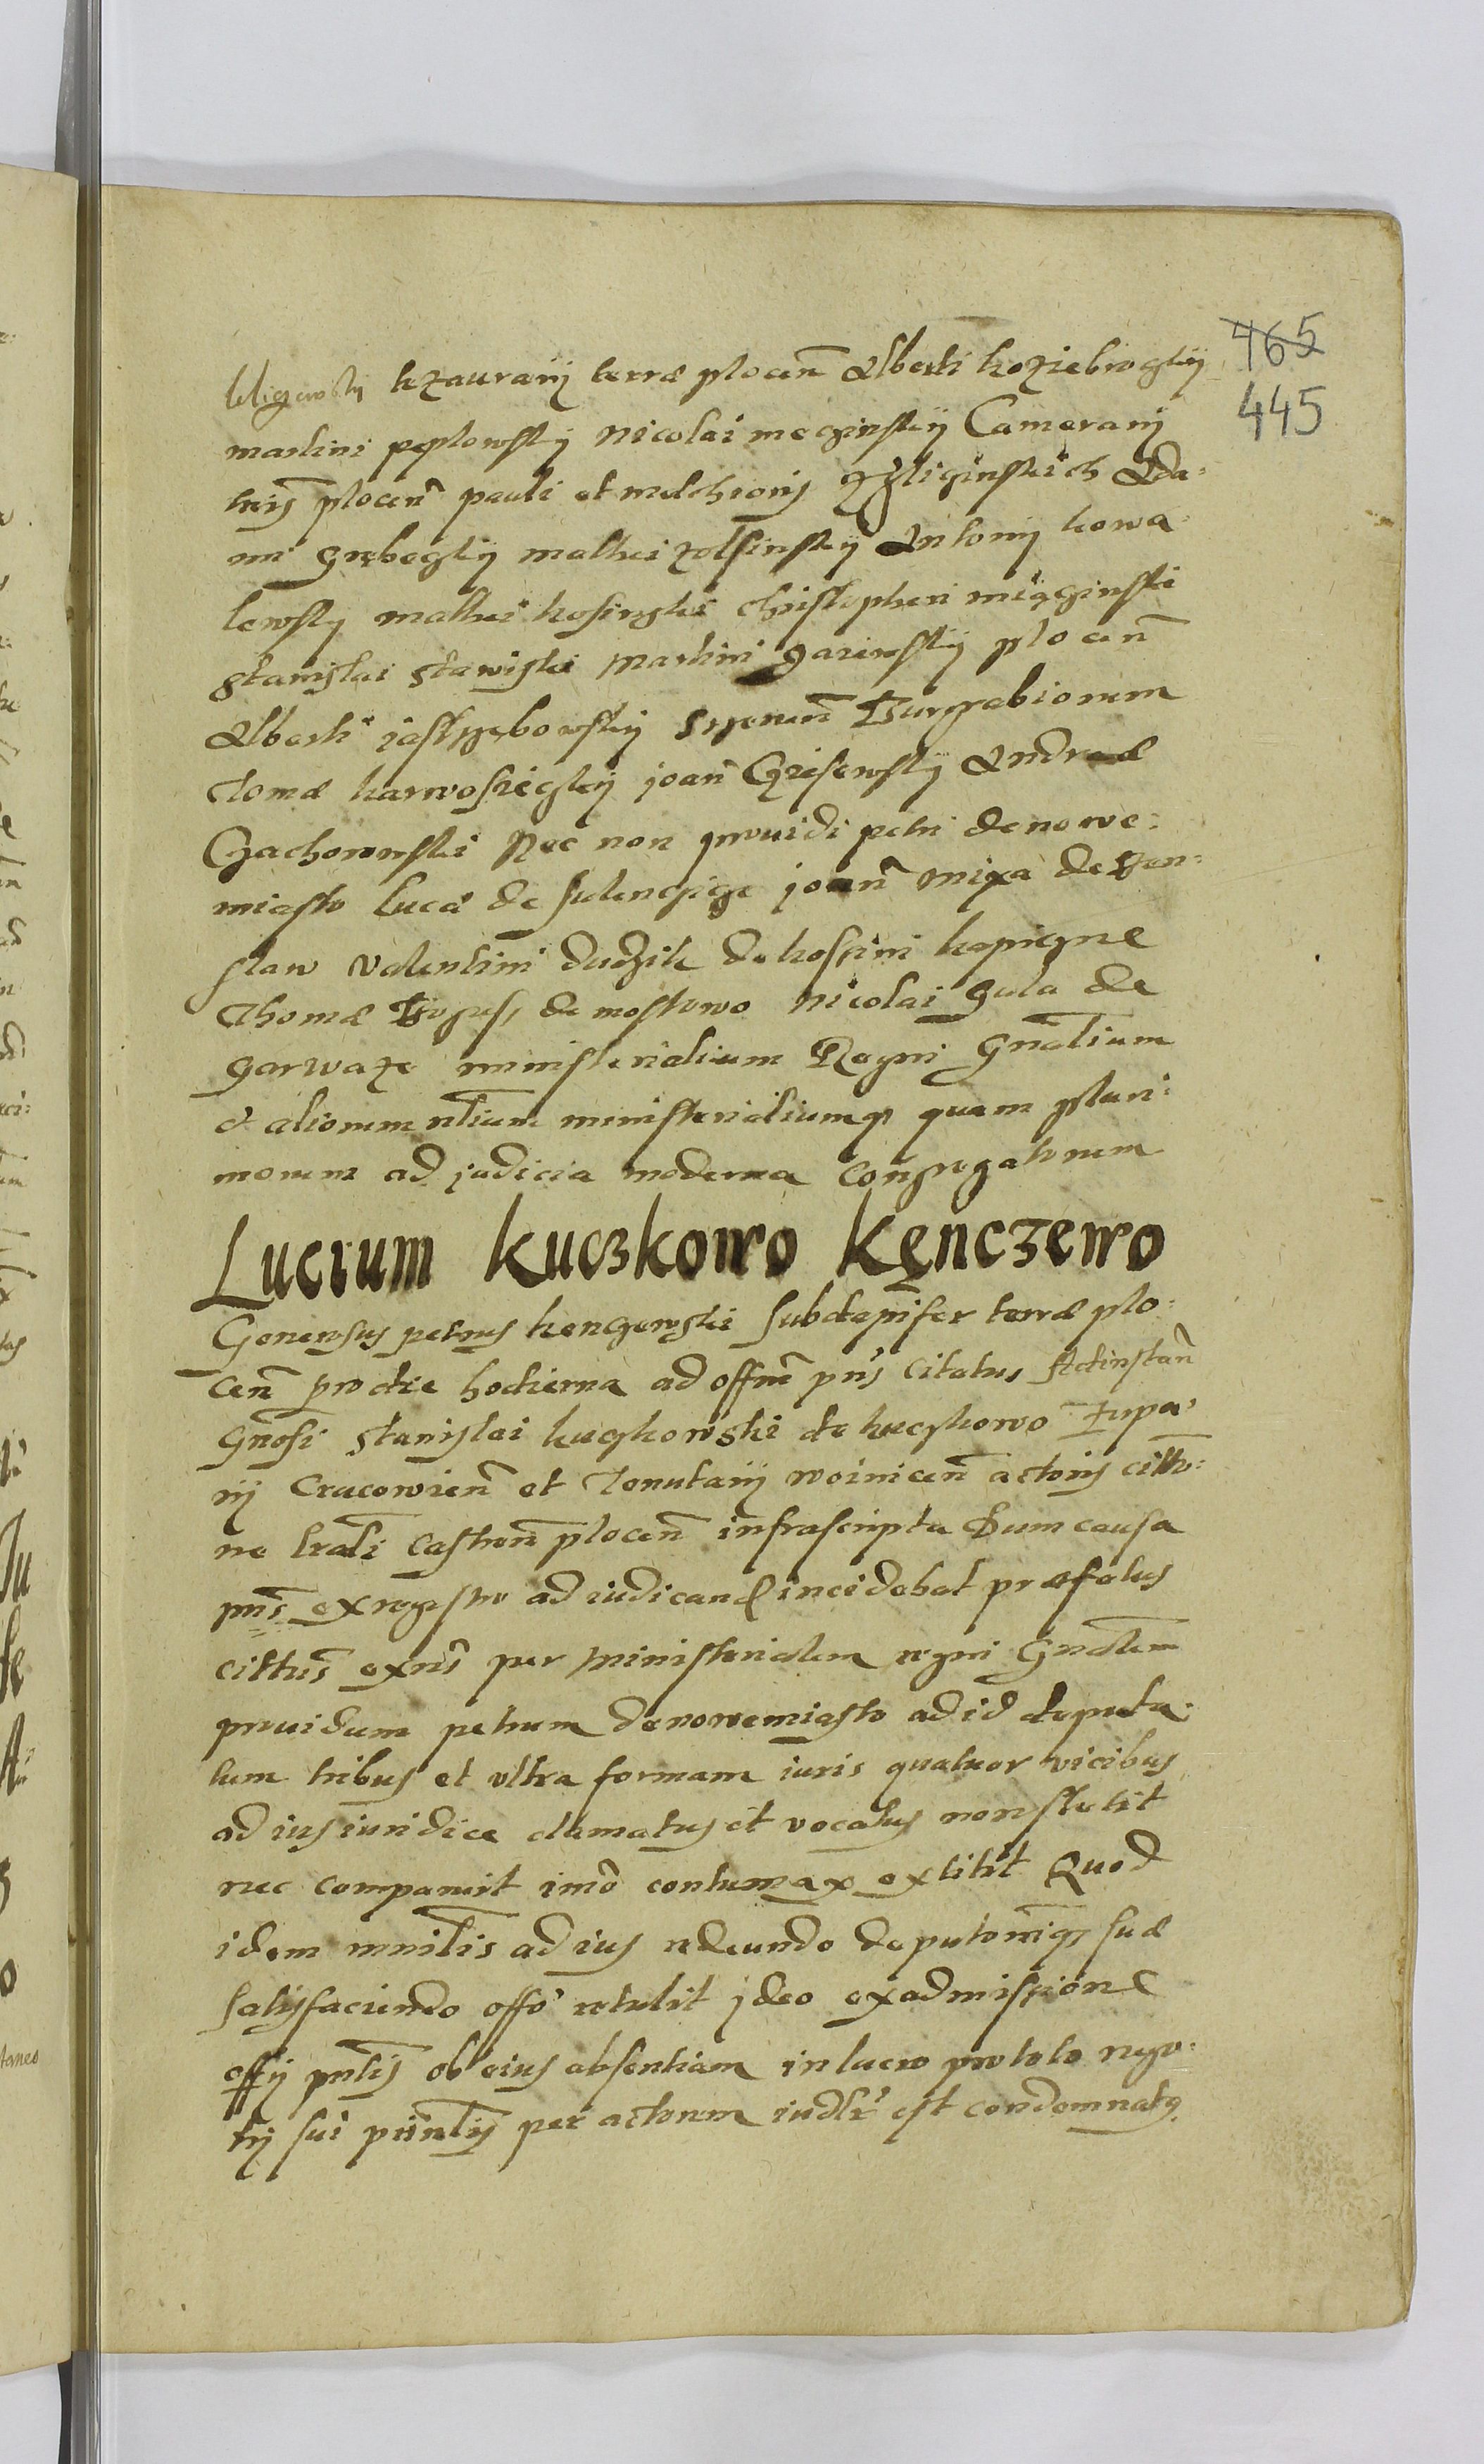 465
445
tezaurarij terræ plocen̄ Alberti koziebrogkij
martini peplowskij nicolai meginskij Camerarij
plocen̄ pauli et melchioris Ada:
mi grębegkij mathei zolsinskij Antonij kowa
lewskj mathei kosinskij christopheri migginski
stanislai stawiski martini garewskij plocen̄
Alberti jastrzębowskij srpenen̄ Burgrabiorum
Tomæ karwosiegkij joan̄ Czisewskij Andreæ
Czachorowski Nec non prouidi petri de nowe:
miasto Lucæ de sulenczige joan̄ mixa de
slaw valentini dudzik de kossini kepiczne
Thomæ de mostowo nicolai gula de
garwaze ministerialium Regni gn̄alium
et aliorum nl̄ium ministerialiumq quam pluri:
morum ad judicia moderna congregatorum
Lucrum kuczkowo Kęnczewo
Generosus petrus kenczewski subdapifer terræ plo:
cen̄ pro die hodierna ad offm̄ pn̄s citatus Ad instan̄
gn̄osi stanislai kuczkowski de kuczkowo żupa:
rij Cracowien̄ et Tenutarij woinicen̄ actoris citto:
ne lr̄ali castren̄ plocen̄ infrascripta Dum causa
pn̄s ex regestro ad iudicand incidebat præfatus
cittus̄ exn̄s per ministerialem regni Gn̄alem
prouidum petrum de nowemiasto ad id deputa:
tum tribus et vltra formam iuris quatuor vicibus
ad ius iuridice clamatus et vocatus non stetit
nec comparuit imō contumax extitit Quod
idem mn̄ilis ad ius redeundo deputoniq suæ
satisfaciendo offō retulit jdeo ex admissione
offij pn̄tis ob eius absentiam in lucro pro toto nego:
tij sui prin̄lis per actorem iudlr̄ est condemnatq